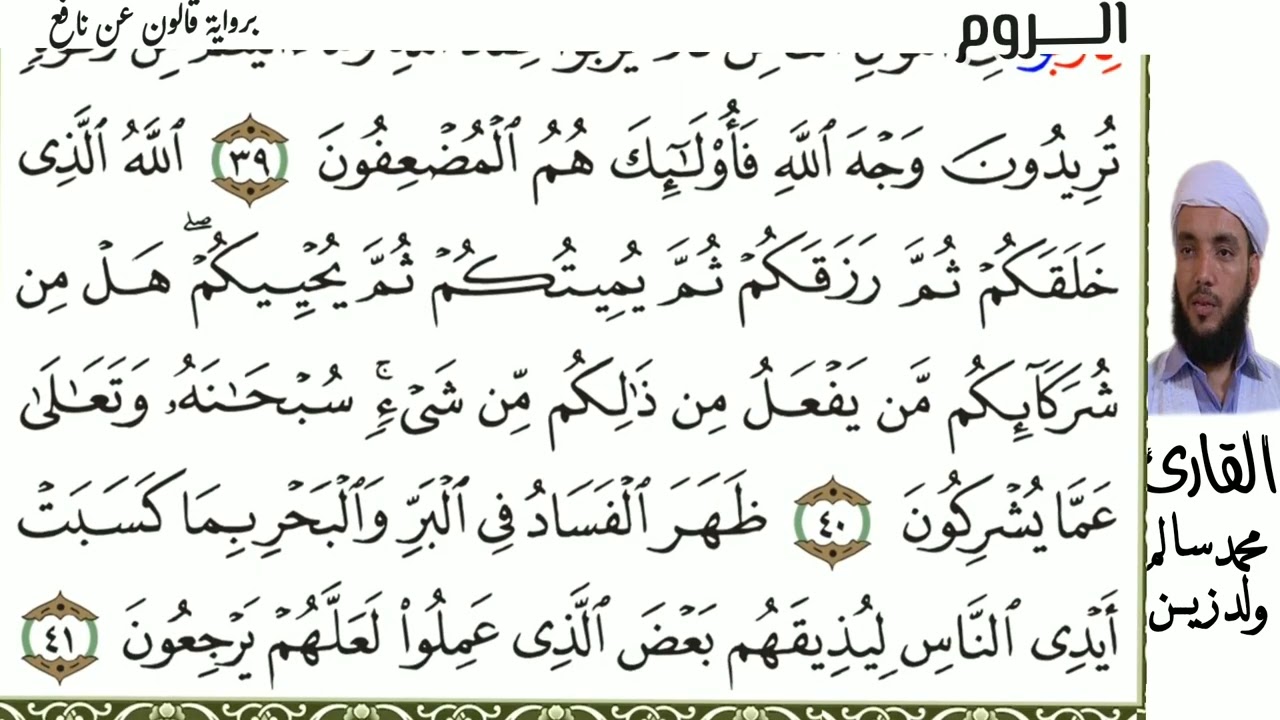 الروم
برواية قالون عن نافع
تُرِيدُونَ وَجْهَ اَ۬للَّهِ فَأُوْلَٰٓئِكَ هُمُ اُ۬لْمُضْعِفُونَ ٣٩ اَ۬للَّهُ اُ۬لَّذِي
خَلَقَكُمْ ثُمَّ رَزَقَكُمْ ثُمَّ يُمِيتُكُمْ ثُمَّ يُحْيِيكُمْۖ هَلْ مِن
شُرَكَآئِكُم مَّن يَفْعَلُ مِن ذَٰلِكُم مِّن شَيْءٖۚ سُبْحَٰنَهُۥ وَتَعَٰلَىٰ
عَمَّا يُشْرِكُونَ ٤٠ ظَهَرَ اَ۬لْفَسَادُ فِي اِ۬لْبَرِّ وَالْبَحْرِ بِمَا كَسَبَتْ
أَيْدِي اِ۬لنَّاسِ لِيُذِيقَهُم بَعْضَ اَ۬لَّذِي عَمِلُواْ لَعَلَّهُمْ يَرْجِعُونَ ٤١
القارئ
محمد سالم
ولد زين